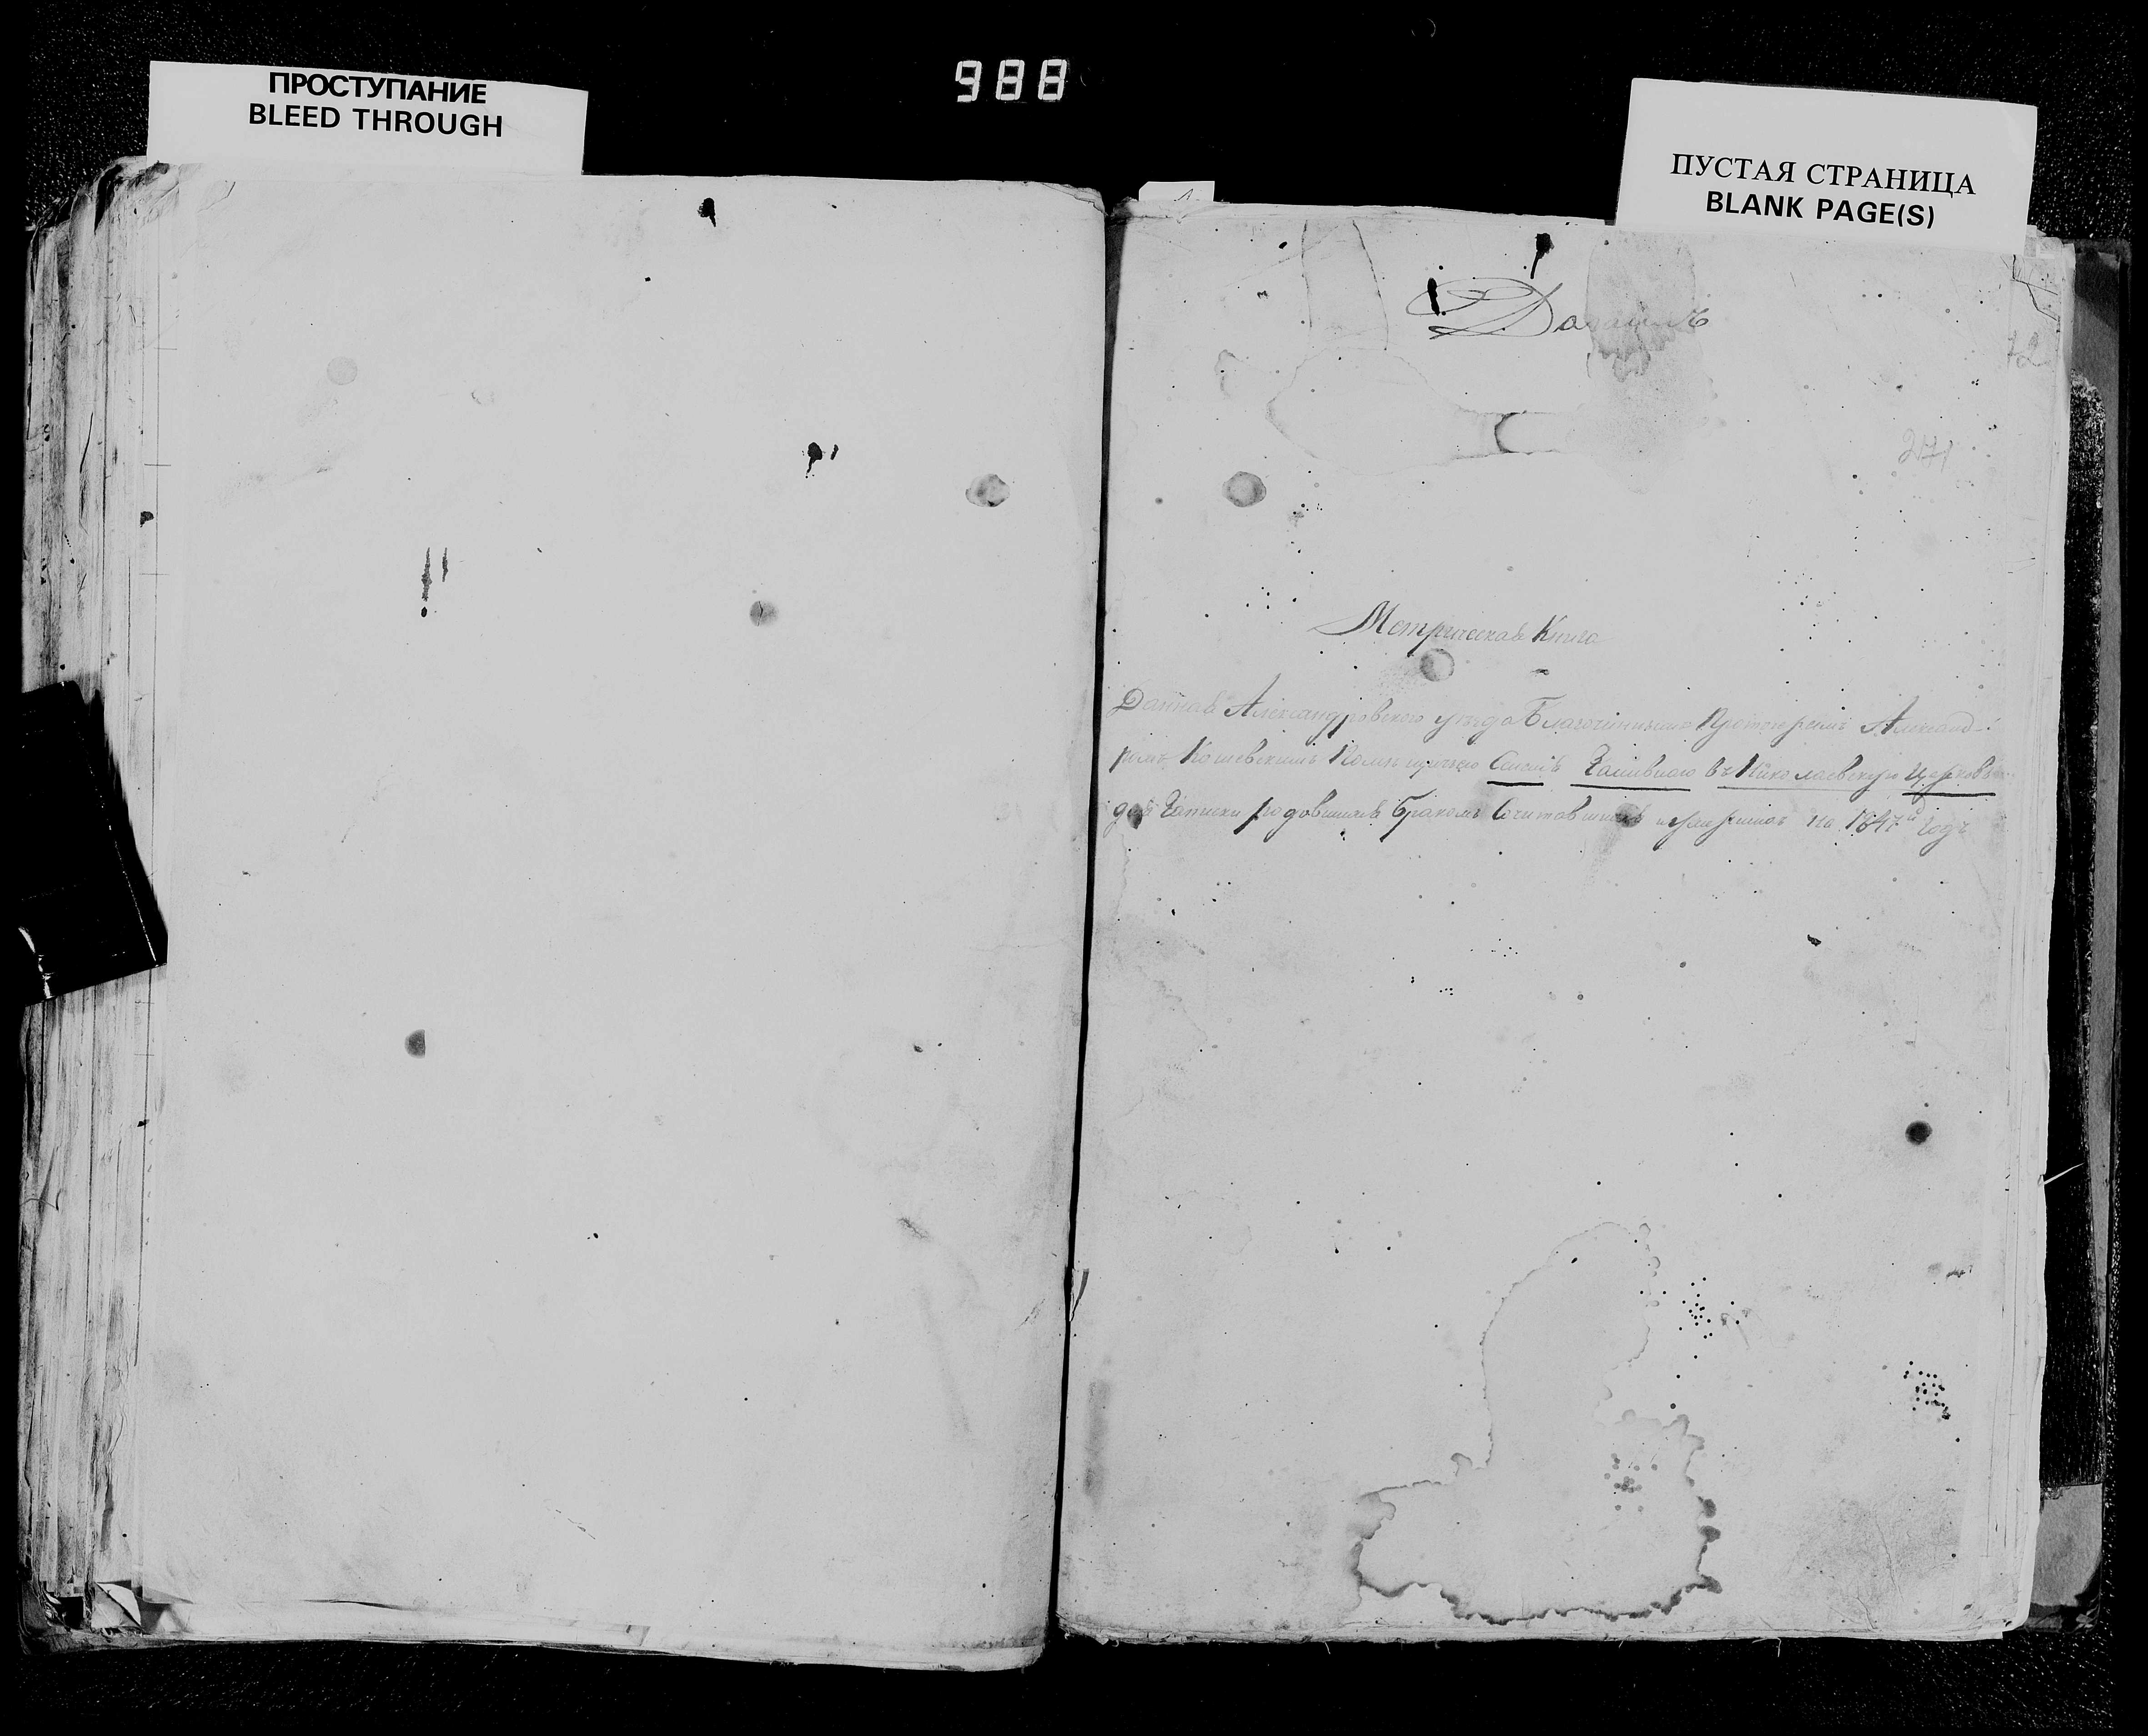 988
ПРОСТУПАНИЕ
BLEED THROUGH
ПУСТАЯ СТРАНИЦА
BLANK PAGE(S)
271
Метрическая Книга
Данная Александровского уѣзда Благочиннымъ Протоіереемъ Александ-
ромъ Кошевскимъ въ Николаевскую Церковь
для Записки родовшихся Бракомъ Сочитавшихся и умершихъ на 1847й Годъ